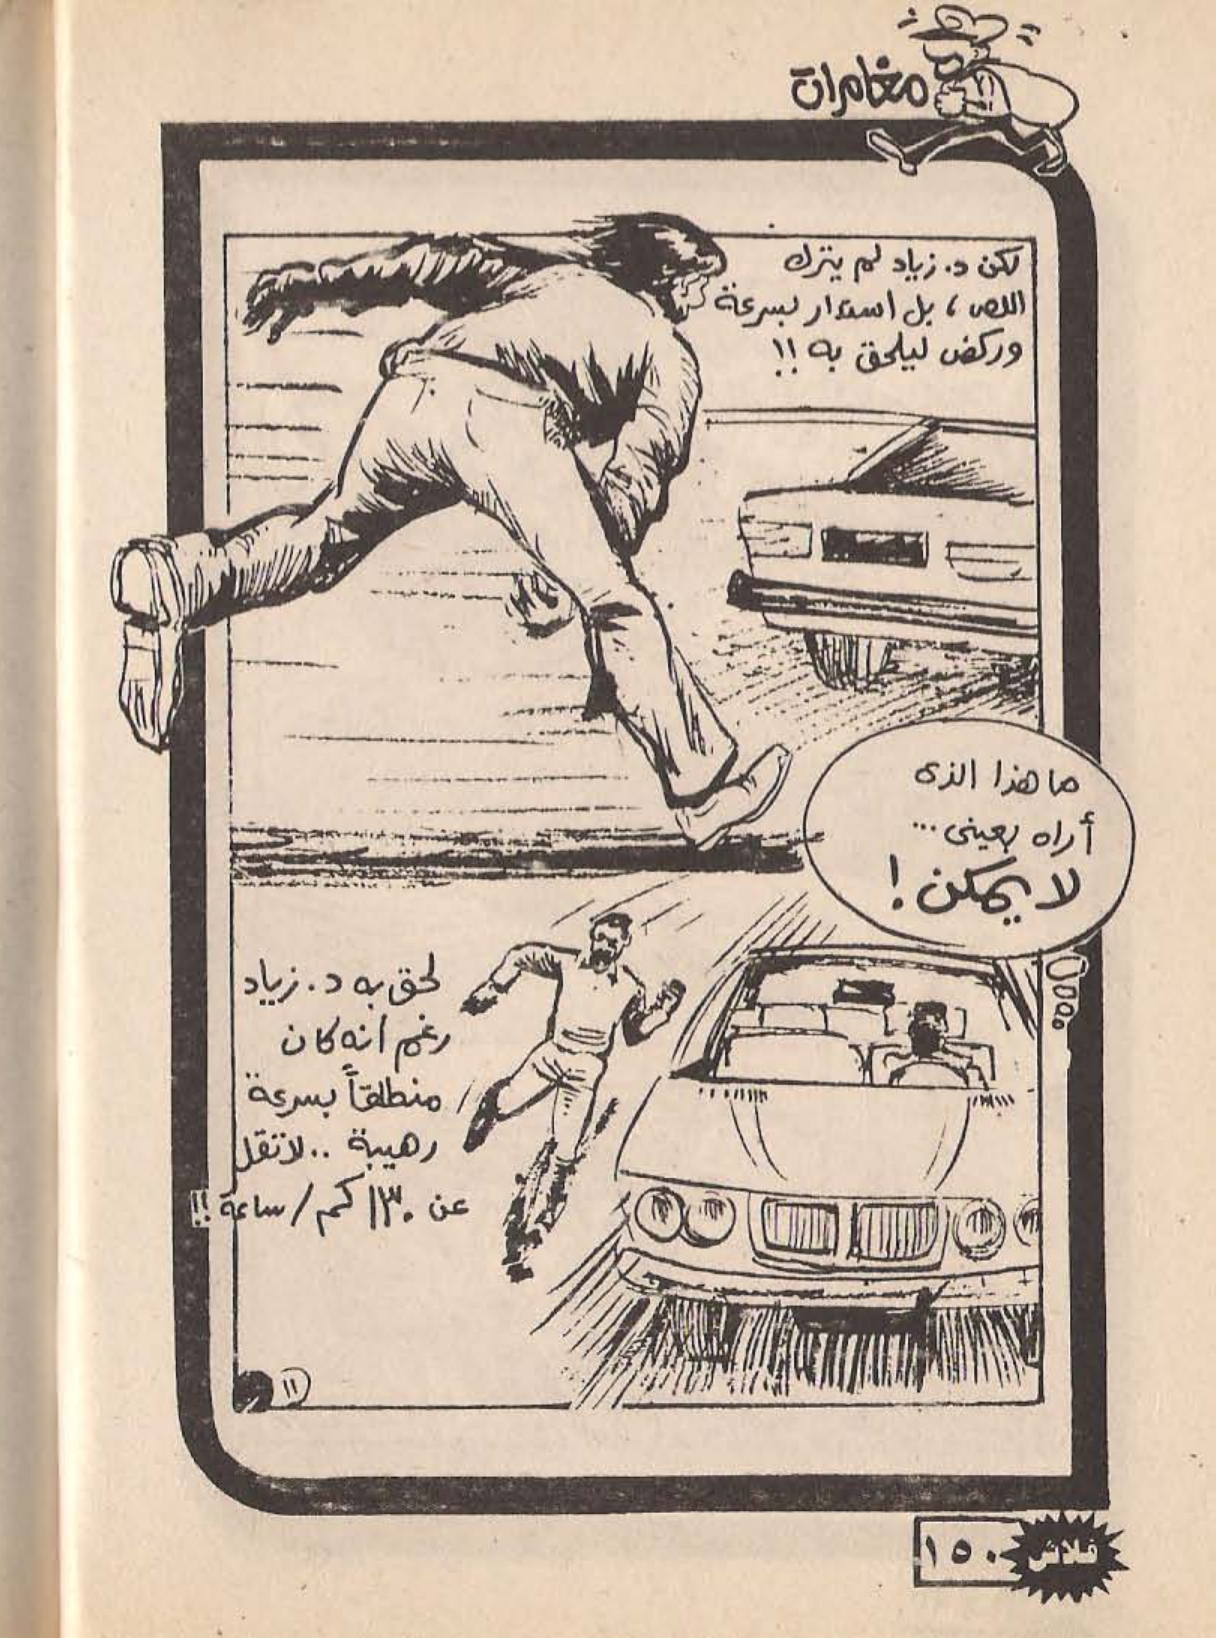 مغامرات
لكن د. زياد لم يترك
اللص ، بل استدار بسرعة
وركض ليلحق به !!
ما هذا الذى
أراه بعينى ...
لا يمكن !
لحق به د. زياد
رغم أنه كان
منطلقاً بسرعة
رهيبة .. لا تقل
عن ١٣٠ كم / ساعة !!
١١
فلاش ١٥٠